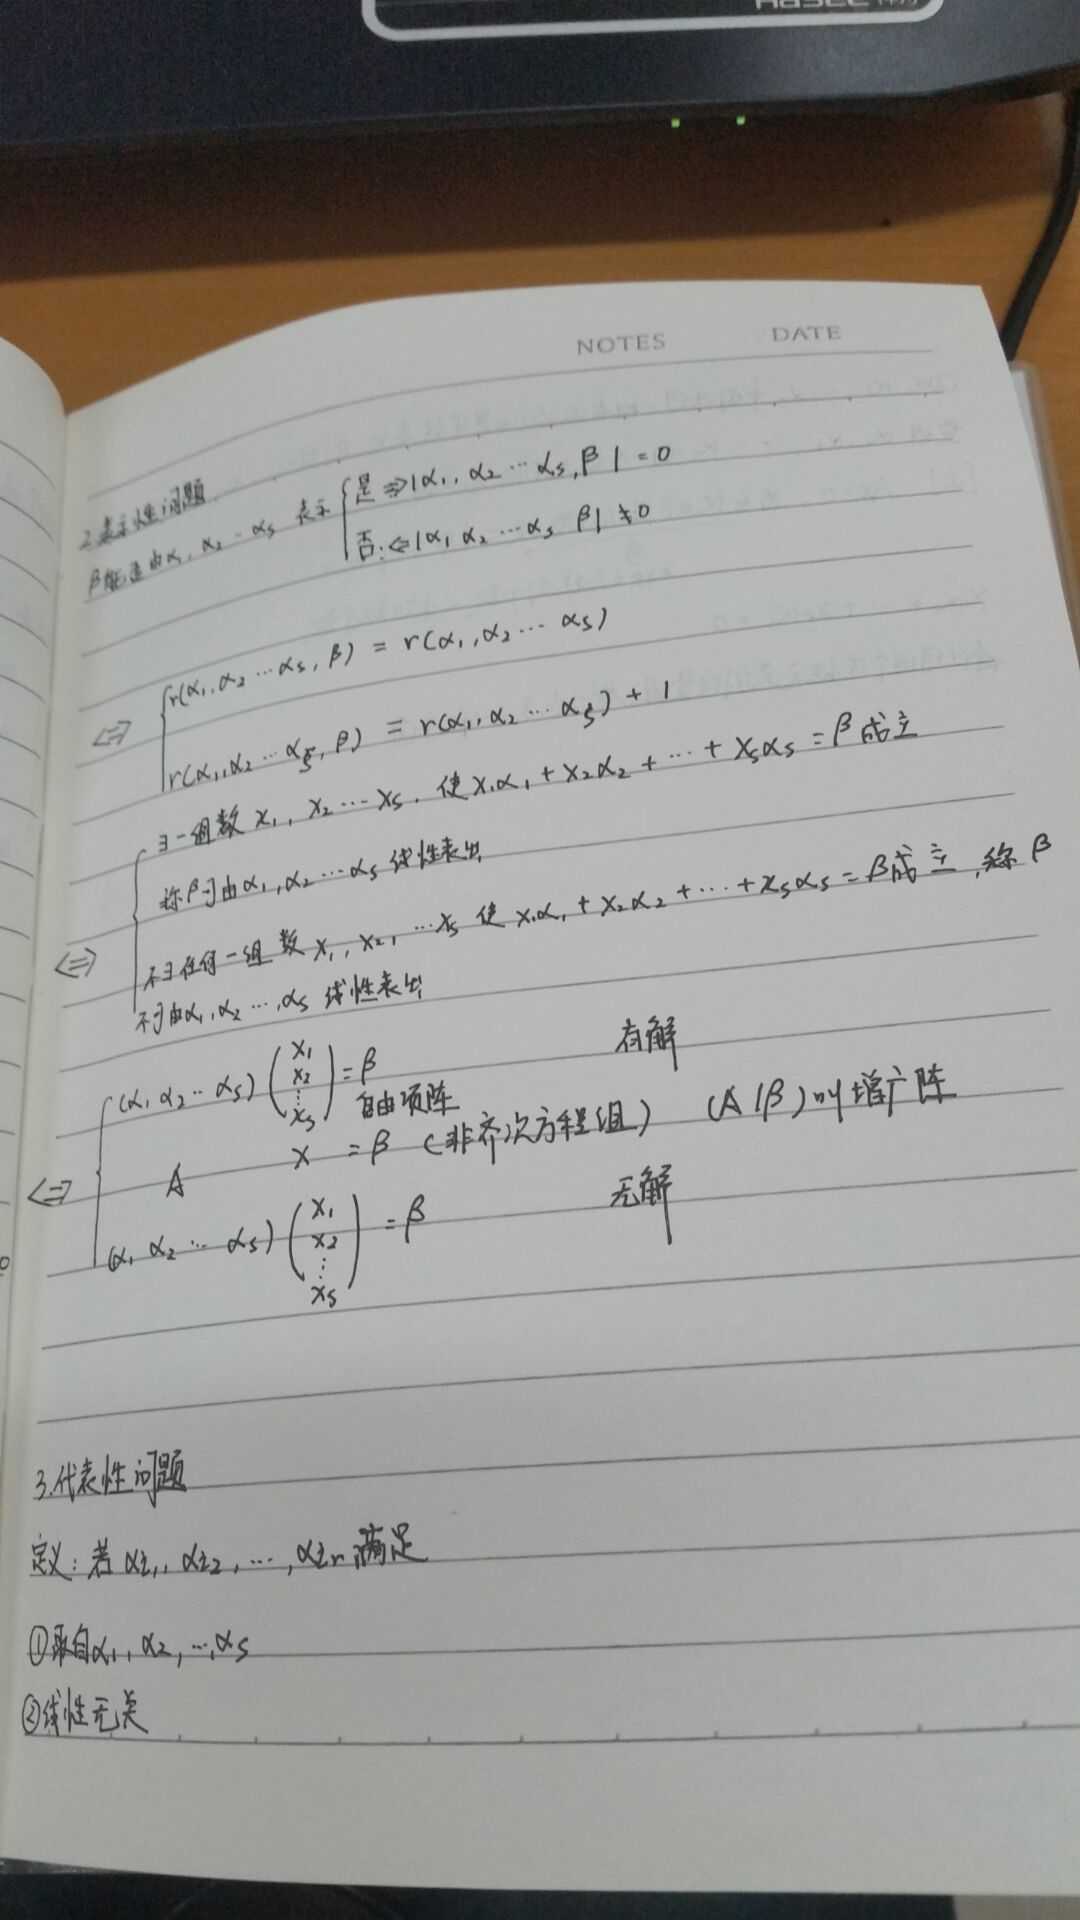 Hasee
NOTES DATE
2.表示性问题
β能否由α₁, α₂ … αₛ 表示 { 是 => |α₁, α₂ … αₛ, β| = 0
否: <= |α₁ α₂ … αₛ β| ≠ 0
<=> { r(α₁, α₂ … αₛ, β) = r(α₁, α₂ … αₛ)
r(α₁, α₂ … αₛ, β) = r(α₁, α₂ … αₛ) + 1
<=> { ∃一组数 x₁, x₂ … xₛ. 使 x₁α₁ + x₂α₂ + … + xₛαₛ = β 成立
称β可由α₁, α₂ … αₛ 线性表出
不∃任何一组数 x₁, x₂, … xₛ 使 x₁α₁ + x₂α₂ + … + xₛαₛ = β成立, 称β
不可由α₁, α₂ …, αₛ 线性表出
<=> { (α₁ α₂ … αₛ) (x₁ x₂ ⋮ xₛ) = β 有解
自由项阵
A x = β (非齐次方程组) (A|β)叫增广阵
(α₁ α₂ … αₛ) (x₁ x₂ ⋮ xₛ) = β 无解
3.代表性问题
定义: 若 αi₁, αi₂, …, αiᵣ 满足
①取自α₁, α₂, …, αₛ
②线性无关